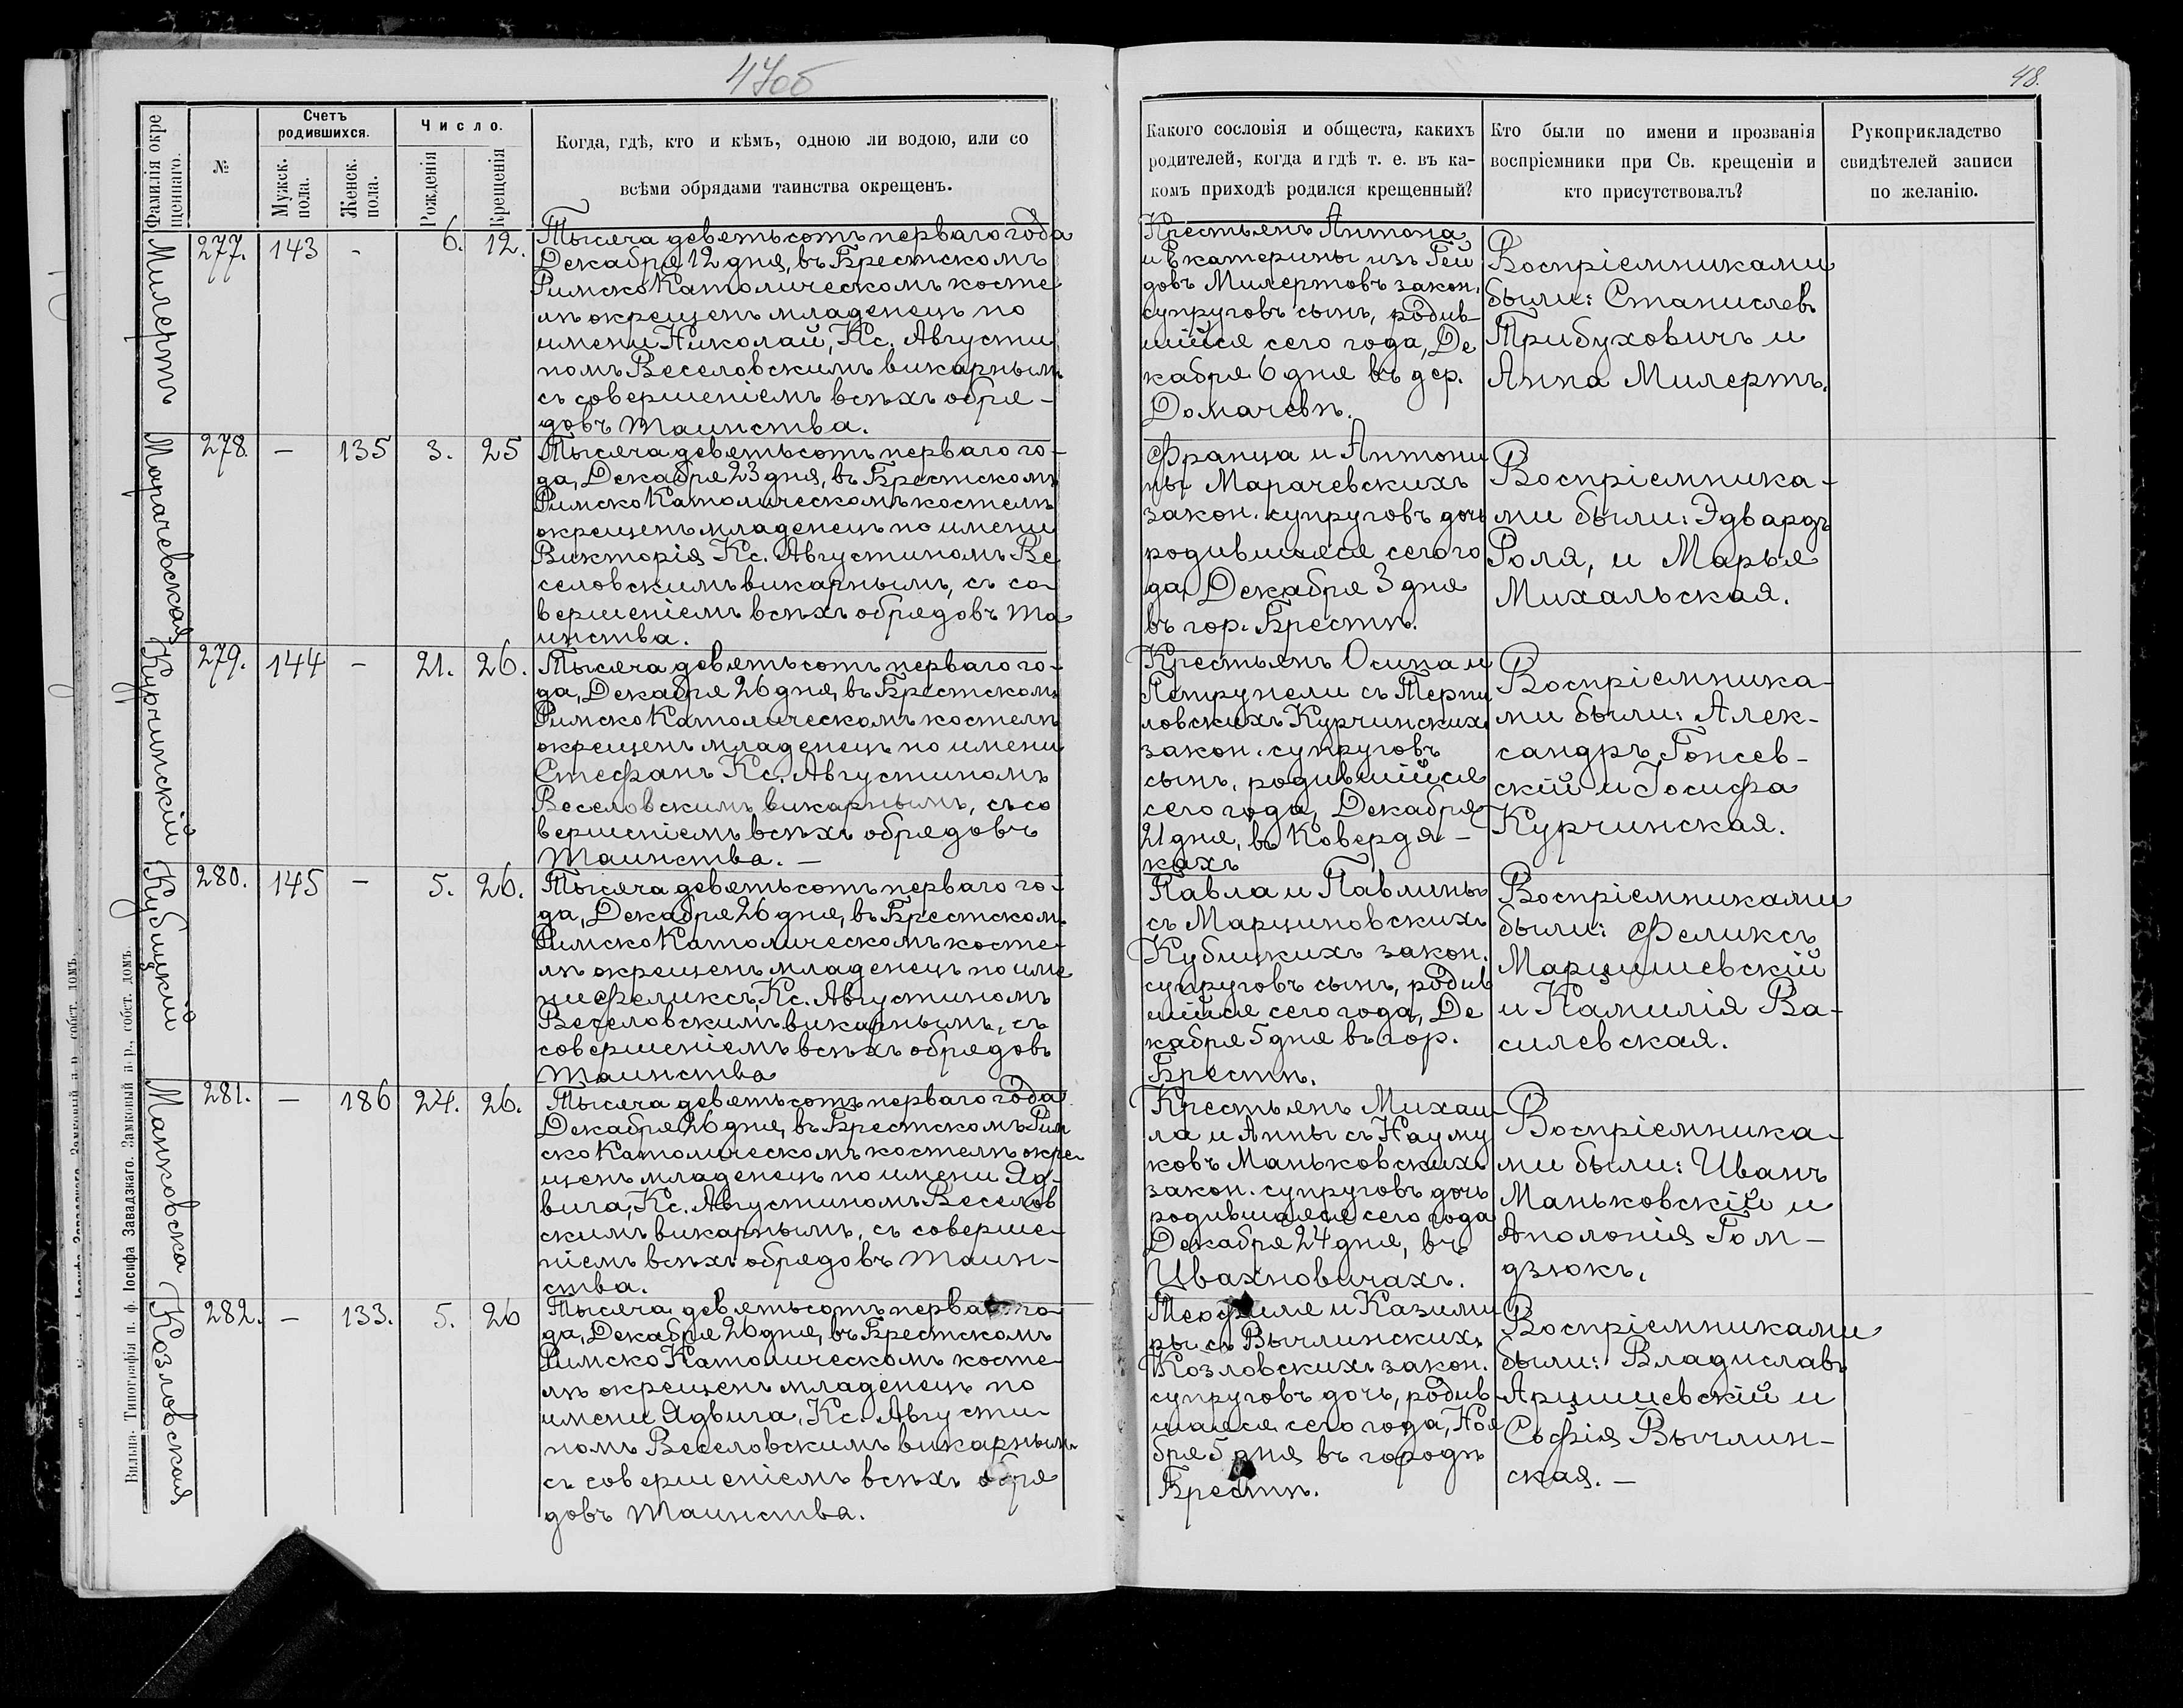 47об
48.
Фамилія окре
щеннаго.
№
Счетъ
родившихся.
Мужск.
пола.
Женск.
пола.
Число.
Рожденія
Крещенія
Когда, гдѣ, кто и кѣмъ, одною ли водою, или со
всѣми обрядами таинства окрещенъ.
Какого сословія и общеста, какихъ
родителей, когда и гдѣ т. е. въ ка-
комъ приходѣ родился крещенный?
Кто были по имени и прозванія
воспріемники при Св. крещеніи и
кто присутствовалъ?
Рукоприкладство
свидѣтелей записи
по желанію.
Милертъ
277. 143 - 6. 12.
Тысяча девятьсотъ перваго года
Декабря 12 дня, въ Брестскомъ
Римско Католическомъ косте
лѣ окрещенъ младенецъ по
имени Николай, Кс. Августи
номъ Веселовскимъ викарнымъ
съ совершеніемъ всѣхъ обря-
довъ Таинства.
Крестьянъ Антона
и Екатерины изъ Гей
довъ Милертовъ закон.
супруговъ сынъ, родив-
шійся сего года, Де
кабря 6 дня въ дер.
Домачевѣ.
Воспріемниками
были: Станиславъ
Трибуховичъ и
Анна Милертъ.
Марачевская
278. - 135 3. 25
Тысяча девятьсотъ перваго го-
да, Декабря 23 дня, въ Брестскомъ
Римско Католическомъ костелѣ
окрещенъ младенецъ по имени
Викторія Кс. Августиномъ Ве
селовскимъ викарнымъ, съ со-
вершеніемъ всѣхъ обрядовъ Та
инства.
Франца и Антони
ны Марачевскихъ
закон. супруговъ дочь
родившаяся сего го
да, Декабря 3 дня
въ гор. Брестѣ.
Воспріемника-
ми были: Эдвардъ
Роля, и Марья
Михальская.
Курчинскій
279. 144 - 21. 26.
Тысяча девятьсотъ перваго го-
да, Декабря 26 дня, въ Брестскомъ
Римско Католическомъ костелѣ
окрещенъ младенецъ по имени
Стефанъ Кс. Августиномъ
Веселовскимъ викарнымъ, съ со
вершеніемъ всѣхъ обрядовъ
Таинства. -
Крестьянъ Осипа и
Петрунели съ Терпи
ловскихъ Курчинскихъ
закон. супруговъ
сынъ, родившійся
сего года, Декабря
21 дня, въ Ковердя-
кахъ
Воспріемника-
ми были: Алек-
сандръ Гонсев-
скій и Іосифа
Курчинская.
Кублицкій
280. 145 - 5. 26.
Тысяча девятьсотъ перваго го-
да, Декабря 26 дня, въ Брестскомъ
Римско Католическомъ косте-
лѣ окрещенъ младенецъ по име
ни Феликсъ, Кс. Августиномъ
Веселовскимъ викарнымъ, съ
совершеніемъ всѣхъ обрядовъ
Таинства
Павла и Павлины
съ Марциновскихъ
Кублицкихъ закон.
супруговъ сынъ, родив
шійся сего года, Де
кабря 5 дня въ гор.
Брестѣ.
Воспріемниками
были: Феликсъ
Марцишевскій
и Камилія Ва-
силевская.
Манковска
281. - 186 24. 26.
Тысяча девятьсотъ перваго года
Декабря 26 дня, въ Брестскомъ Рим
ско Католическомъ костелѣ окре-
щенъ младенецъ по имени Яд-
вига, Кс. Августиномъ Веселов
скимъ викарнымъ, съ соверше-
ніемъ всѣхъ обрядовъ Таин-
ства.
Крестьянъ Михаи-
ла и Анны съ Науму
ковъ Маньковскихъ
закон. супруговъ дочь
родившаяся сего года
Декабря 24 дня, въ
Ивахновичахъ.
Воспріемника-
ми были: Иванъ
Маньковскій и
Аполонія Гом-
дзюкъ.
Козловская
282. - 133. 5. 26
Тысяча девятьсотъ перваго го-
да, Декабря 26 дня, въ Брестскомъ
Римско Католическомъ косте-
лѣ окрещенъ младенецъ по
имени Ядвига, Кс. Августи-
номъ Веселовскимъ викарнымъ
съ совершеніемъ всѣхъ обря
довъ Таинства.
Теофиля и Казими
ры съ Вычлинскихъ
Козловскихъ закон.
супруговъ дочь, родив
шаяся сего года, Ноя
бря 5 дня въ городѣ
Брестѣ.
Воспріемниками
были: Владиславъ
Арцишевскій и
Софія Вычлин-
ская. -
Вильна. Типографія п. ф. Іосифа Завадзкаго. Замковый п.р., собст. домъ.